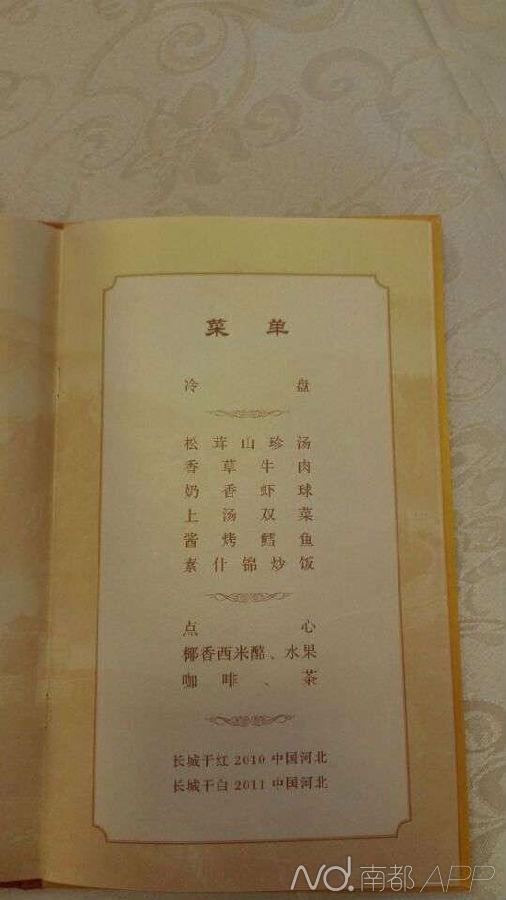 菜单
冷盘
松茸山珍汤
香草牛肉
奶香虾球
上汤双菜
酱烤鳕鱼
素什锦炒饭
点心
椰香西米酪、水果
咖啡、茶
长城干红 2010 中国河北
长城干白 2011 中国河北
nd.南都APP